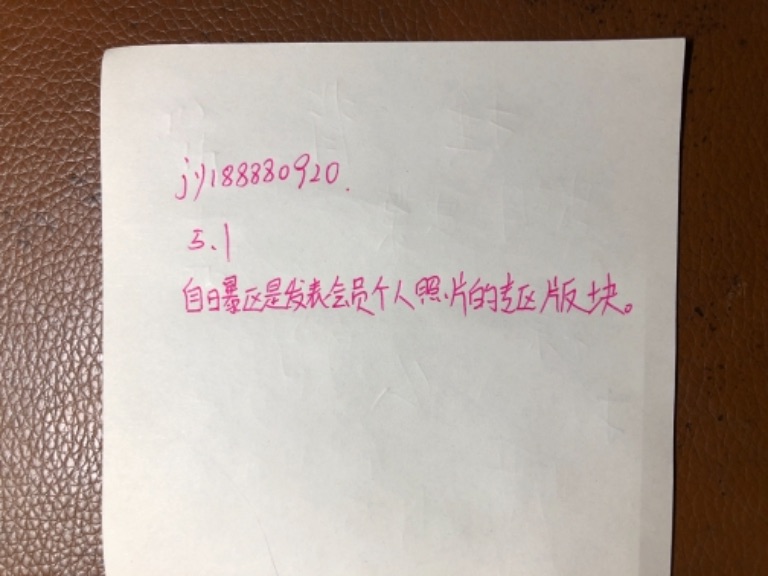 jy188880920.
5.1
自曝区是发表会员个人照片的专区版块。